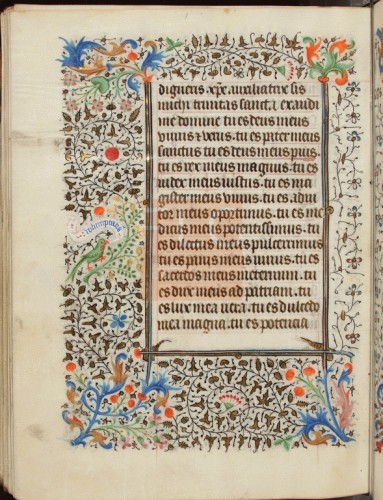 digneris. xpe. auxiliatrix sis
michi trinitas sancta. exaudi
me domine tu es deus meus
vivus & verus. tu es pater meus
sanctus. tu es deus meus pius.
tu es rex meus magnus. tu es
iudex meus iustus. tu es ma
gister meus vnus. tu es. adiu
tor meus oportunus. tu es me
dicus meus potentissimus. tu
es dilectus meus pulcerrimus
tu es panis meus vivus. tu es
sacerdos meus in eternum. tu
es dux meus ad patriam. tu
es lux mea vera. tu es dulcedo
mea magna. tu es potencia